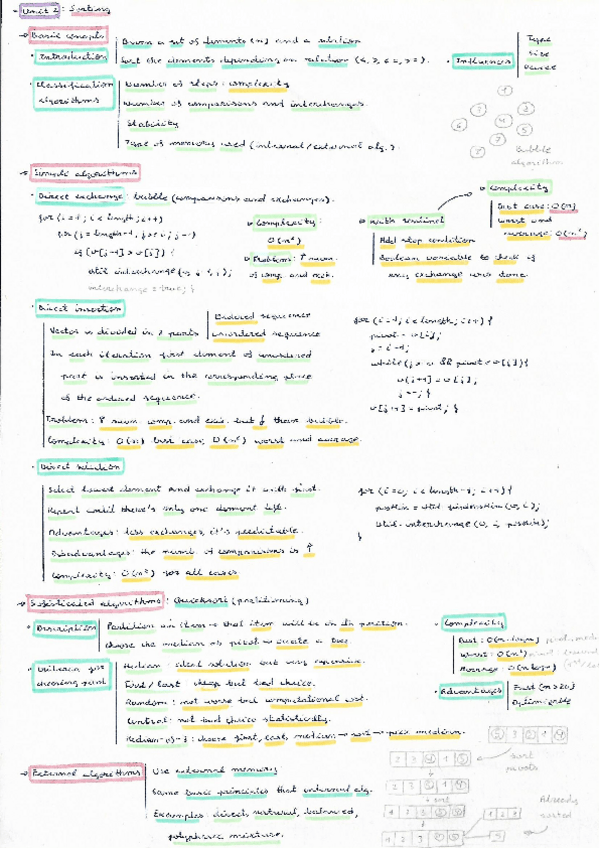 Unit 2: Sorting
Basic concepts
Introduction
Given a set of elements (n) and a relation
Sort the elements depending on relation (<, >, ≤, ≥ =).
Influences
Type
Size
Device
Classification algorithms
Number of steps: complexity
Number of comparisons and interchanges
Stability
Type of memory used (internal/external alg.).
Bubble
algorithm
Simple algorithms
Direct exchange: bubble (comparisons and exchanges).
for (i=1; i<length; i++)
for (j=length-1; j>=i; j--)
if (v[j-1] > v[j]) {
util.interchange(v, j-1, j);
interchange = true; }
Complexity:
O(n²)
Problem: ↑ num.
of comp. and exch.
With sentinel
Add stop condition
Boolean variable to check if
any exchange was done
Complexity
Best case: O(n)
Worst and
average: O(n²)
Direct insertion
Vector is divided in 2 parts
Ordered sequence
Unordered sequence
In each iteration first element of unordered
part is inserted in the corresponding place
of the ordered sequence.
Problem: ↑ num. comp. and exch. but
than bubble.
Complexity: O(n) best case, O(n²) worst and average.
for (i=1; i<length; i++) {
pivot = v[i];
j = i-1;
while (j >= 0 && pivot < v[j]) {
v[j+1] = v[j];
j--; }
v[j+1] = pivot; }
Direct selection
Select lowest element and exchange it with first.
Repeat until there's only one element left.
Advantages: less exchanges, it's predictable.
Disadvantages: the numb. of comparisons is ↑
Complexity: O(n²) for all cases
for (i=0; i<length-1; i++) {
}
Sofisticated algorithms: Quicksort (partitioning)
Description
Partition an item → that item will be in its position.
Choose the median as pivot → create a tree
Complexity
Best: O(n·logn)
Worst: O(n²)
Average: O(n logn)
Advantages
Fast (n > 20)
Optimizable
choosing pivot
Median: ideal solution but very expensive.
First/last: cheap but bad choice.
Random: not worse but computational cost.
Central: not bad choice statistically.
Median-of-3: choose first, last, medium → sort → pick median.
sort
pivots
sort
Already
sorted
External algorithms
Use external memory
Same basic principles that internal alg.
Examples: direct, natural, balanced,
polyphase mixture.